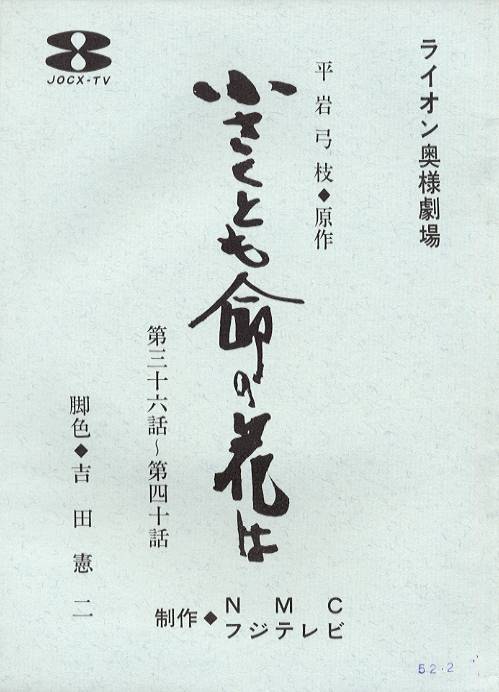 ライオン奥様劇場
平岩弓枝◆原作
小さくとも命の花は
第三十六話～第四十話
脚色◆吉田憲二
制作◆NMC
フジテレビ
JOCX-TV
52.2